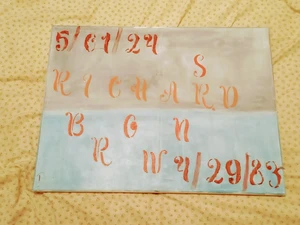 5/01/24
S
RICHARD
B O N
R W 4/29/83